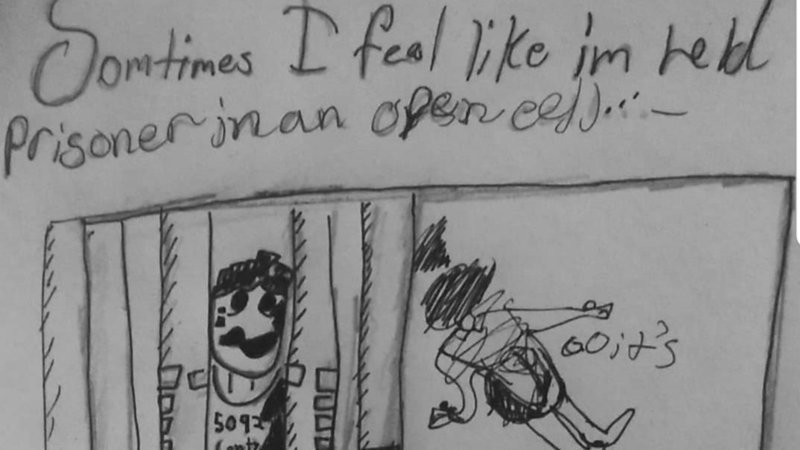 Somtimes I feel like im held
Prisoner in an open cell...-
OO it's
5092